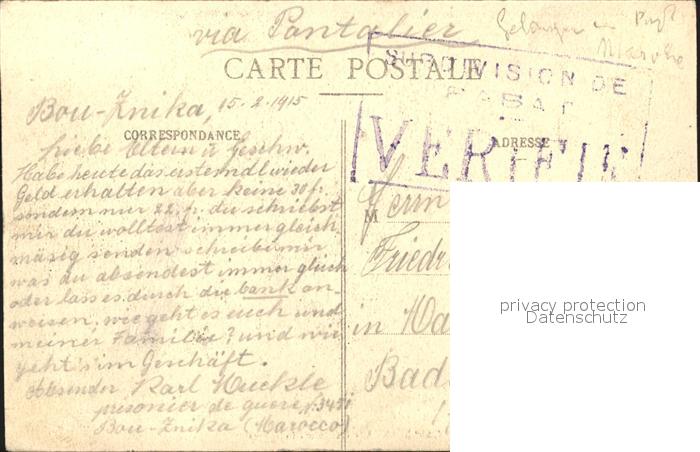 via Pontalier
CARTE POSTALE
SUBDIVISION DE
RABAT
VERIFIE
Bou-Znika, 15.2.1915
CORRESPONDANCE
ADRESSE
Liebe Eltern u Geschw.
Habe heute das erstemal wieder
Geld erhalten aber keine 30 fr.
sondern nur 22. fr. du schriebst
mir du wolltest immer gleich
mäsig senden schreibe mir
was du absendest immer gleich
oder lass es durch die bank an
weisen, wie geht es euch und
meiner Familie? und wie
geht's im Geschäft.
Absender Karl Huckle
prisonier de guere
Bou-Znika (Marocco)
M Herrn
Friedr
in
Bad
privacy protection
Datenschutz